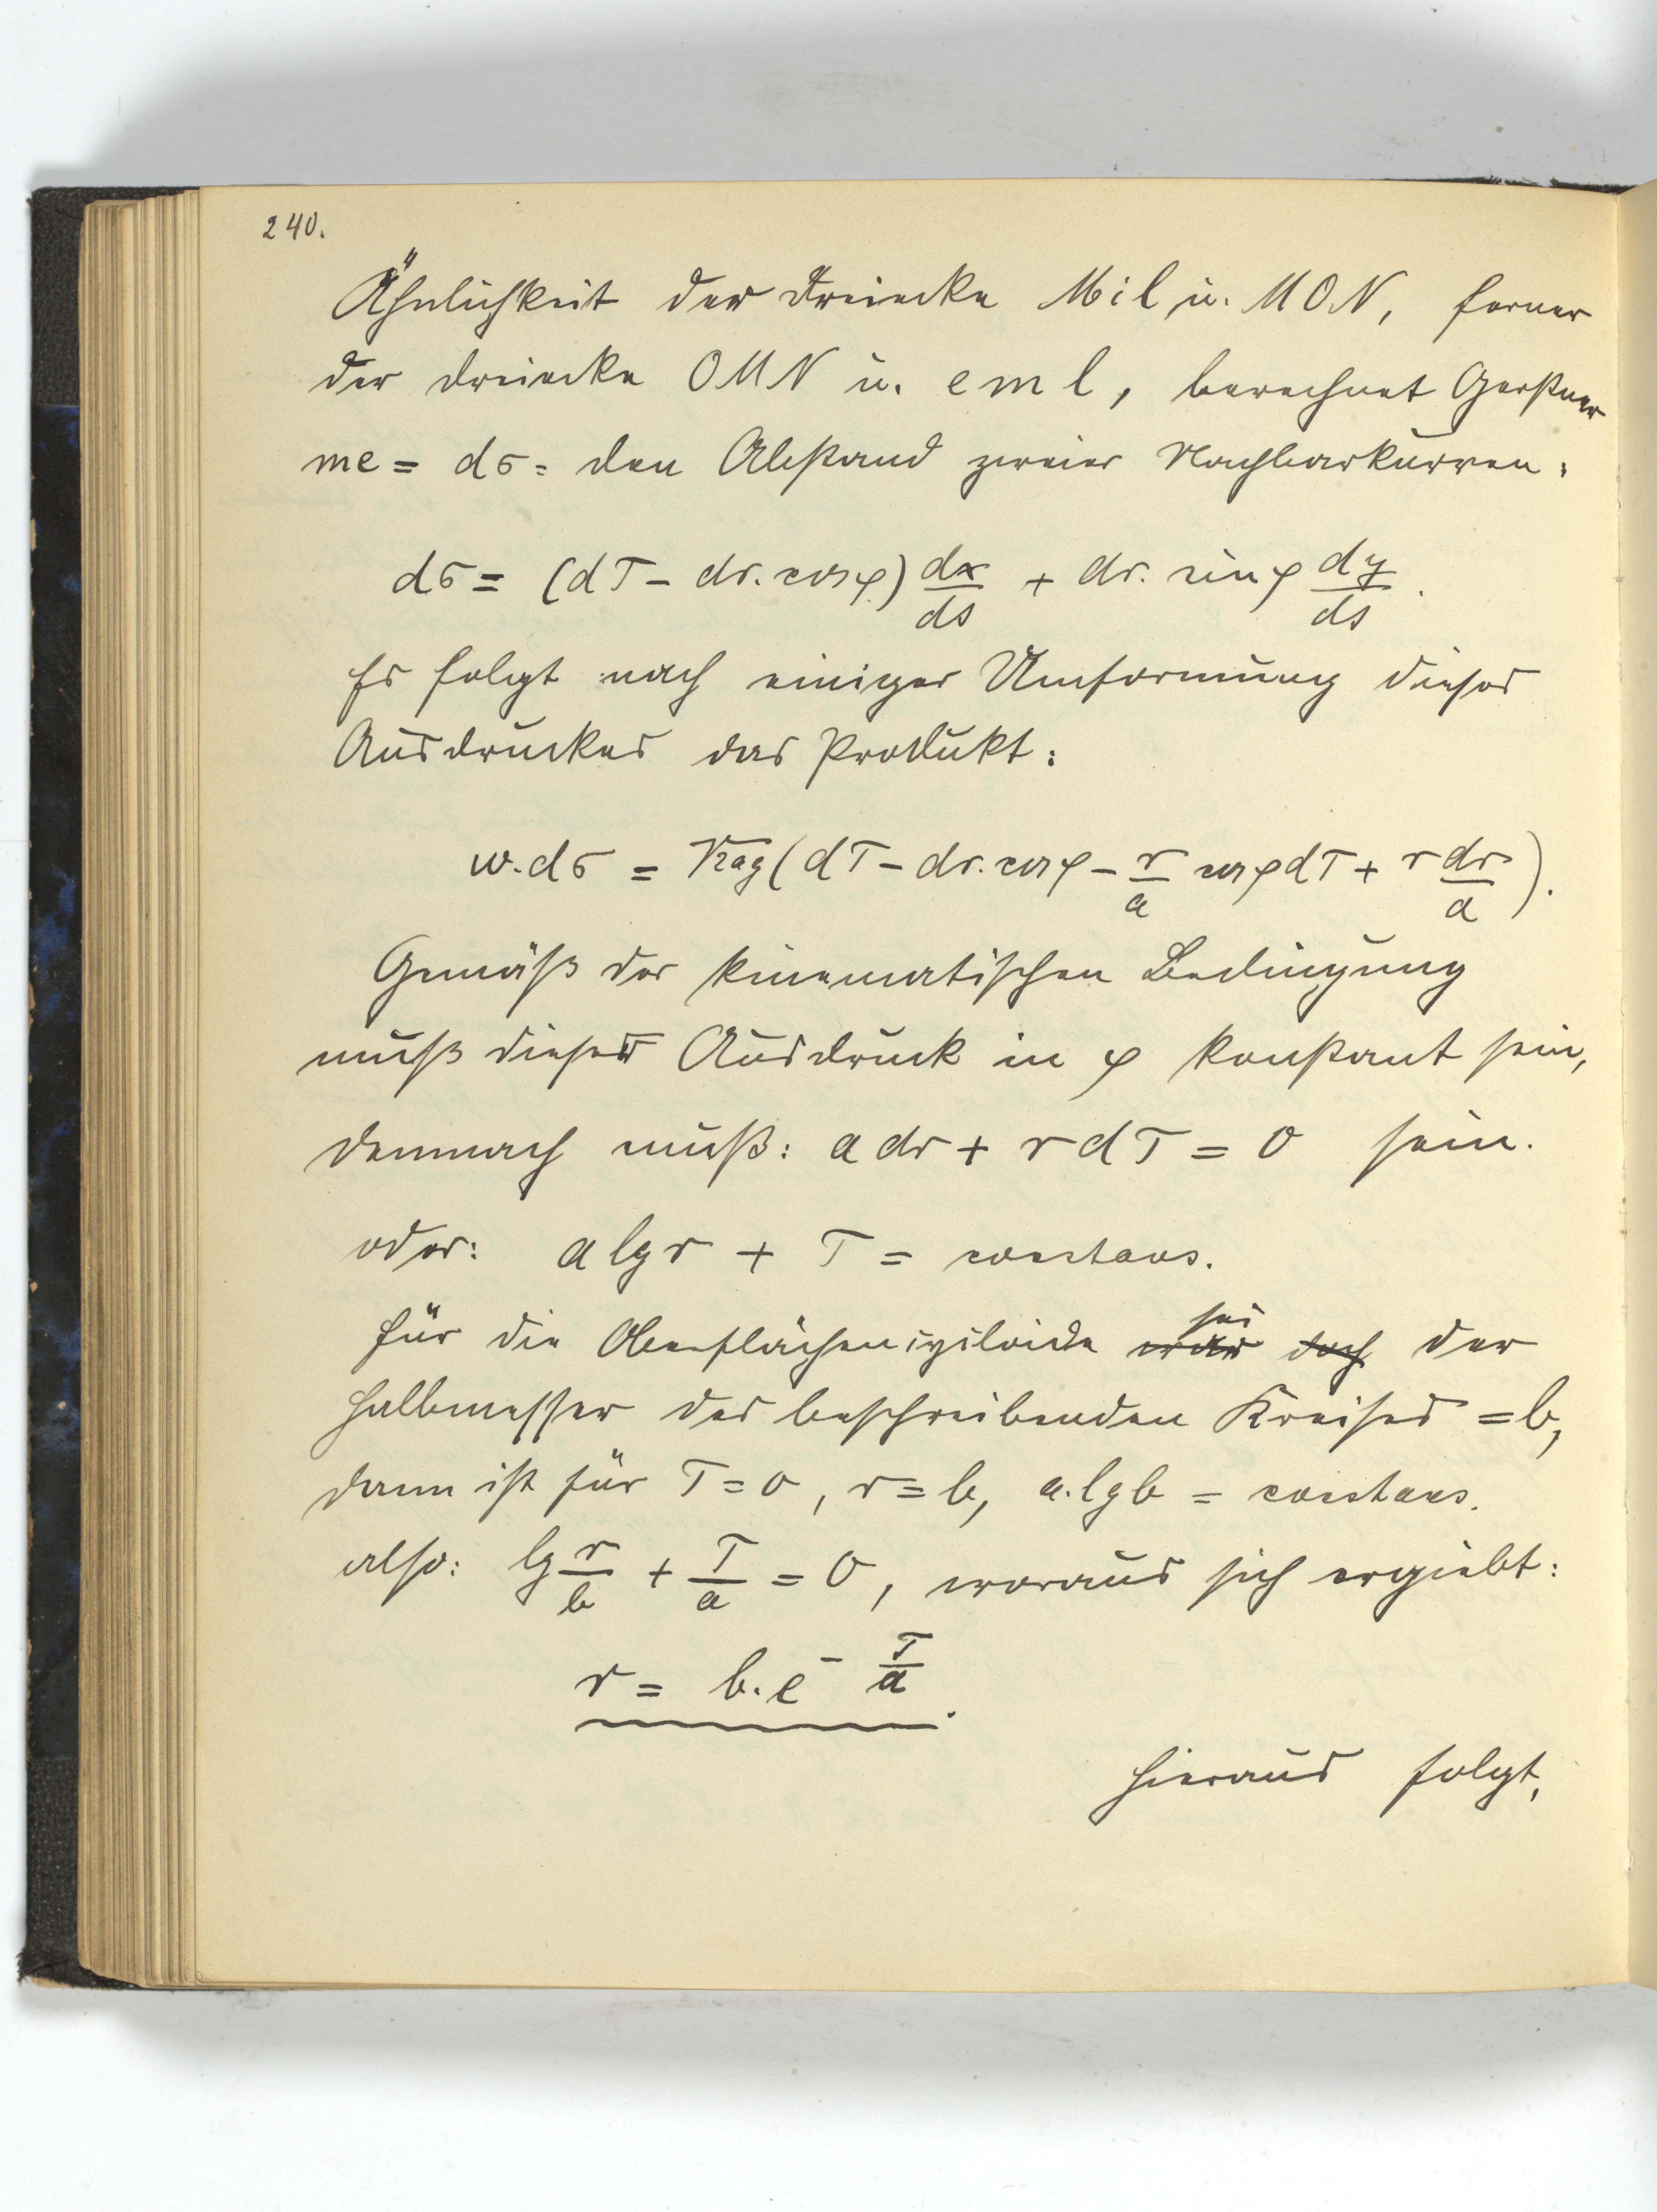 240.
Ähnlichkeit der Dreiecke Mil u. MON, ferner
der Dreiecke OMN u. eml, berechnet Gerstner
me = dσ = den Abstand zweier Nachbarkurven:
dσ = (dT - dr. cosφ) dx/ds + dr. sinφ dy/ds.
Es folgt nach einiger Umformung dieses
Ausdruckes das Produkt:
w.dσ = √2ag (dT - dr. cosφ - r/a cosφdT + r dr/a).
Gemäß der kinematischen Bedingung
muß dieser Ausdruck in φ konstant sein,
demnach muß: adr + rdT = 0 sein.
oder: a lg r + T = constans.
für die Oberflächencycloide sei war doch der
Halbmesser des beschreibenden Kreises = b,
dann ist für T = 0, r = b, a.lgb = constans.
also: lg r/b + T/a = 0, woraus sich ergiebt:
r = b.e^- T/a.
Hieraus folgt,